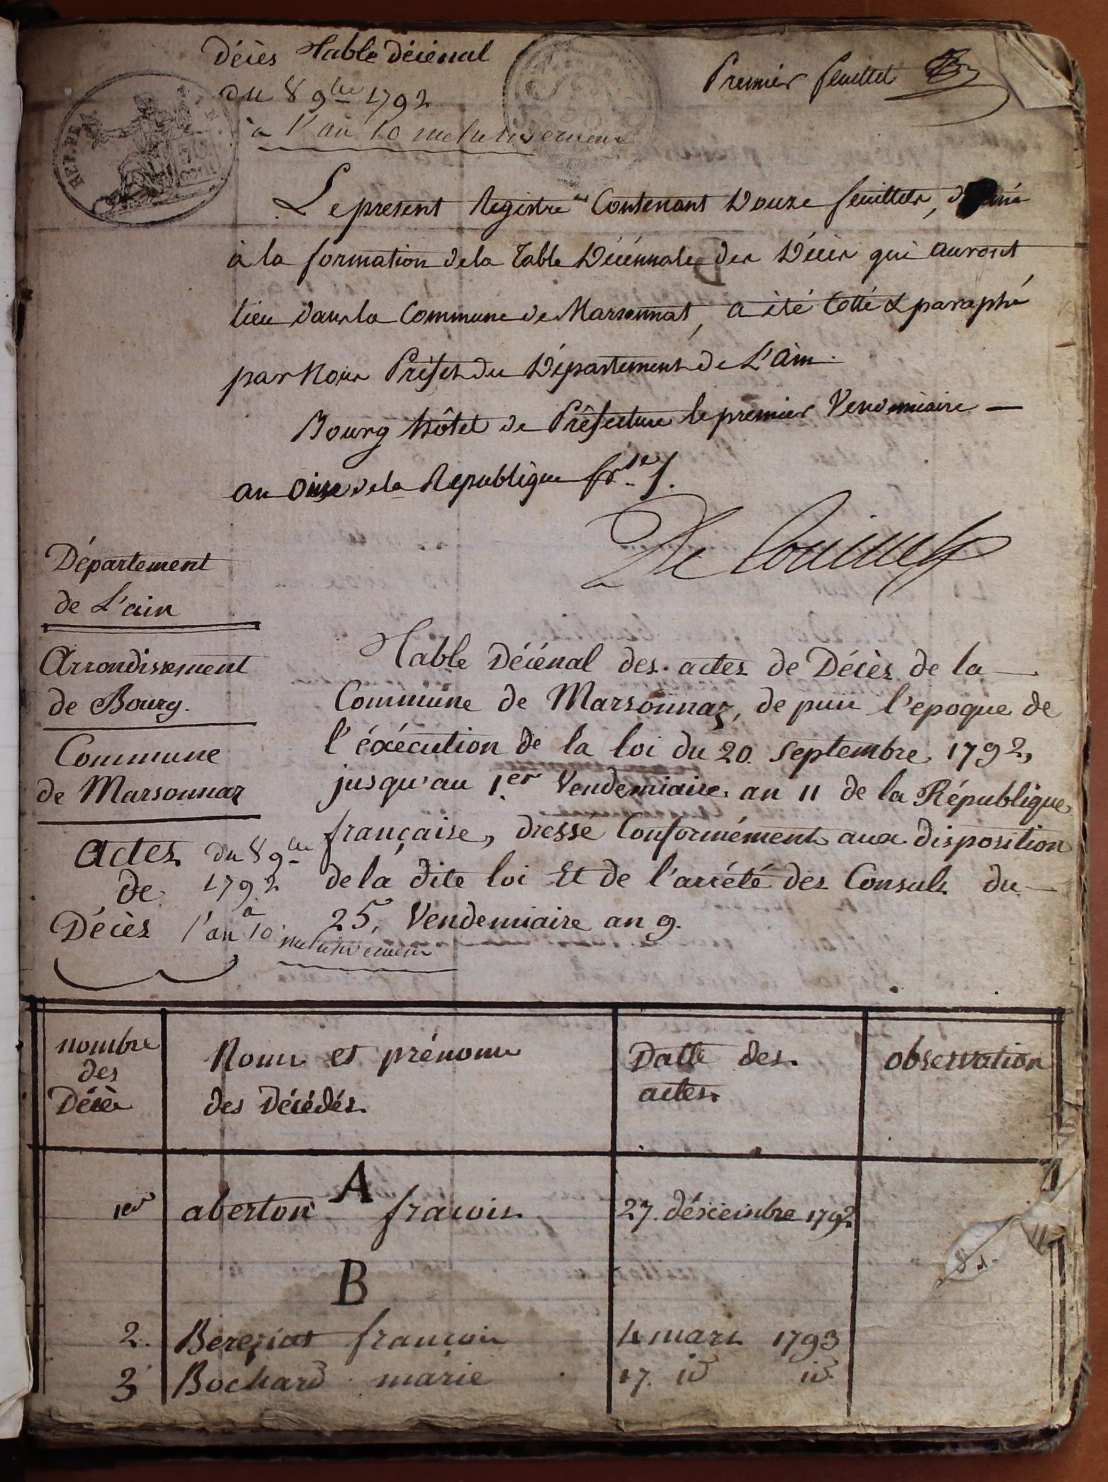 décès Table décénal
du 8 9bre 1792
à l'an 10 inclusivement
Premier feuillet
REP. FRA
Le present Registre Contenant Douze feuillets, destiné
à la formation de la Table Décénnale des Décès qui auront
lieu dans la Commune de Marsonnat, a été Cotté & paraphé
par Nous Préfet du Département de L'ain.
Bourg hôtel de Préfecture le premier Vendemiaire —
an onze de la Republique frse ./.
Département
de L'ain
Arrondissement
de Bourg.
Commune
de Marsonnaz
Actes du 8 9bre
de 1792
à
Décès l'an 10 inclusivement
Table Décénal des actes de Décès de la
Commune de Marsonnaz, depuis l'epoque de
l'éxécution de la loi du 20 septembre 1792,
jusqu'au 1.er Vendemiaire an 11 de la République
française, dresse Conformément aux disposition
de la dite loi Et de l'arrété des Consuls du —
25, Vendemiaire an 9.
nombre des Décès
Noms et prénoms des Décédés.
Datte des actes.
observation
A
1er aberton fracois 27 désceinbre 1792
B
2. Bereziat françois 4 mars 1793
3 Bochard marie 17. id id.